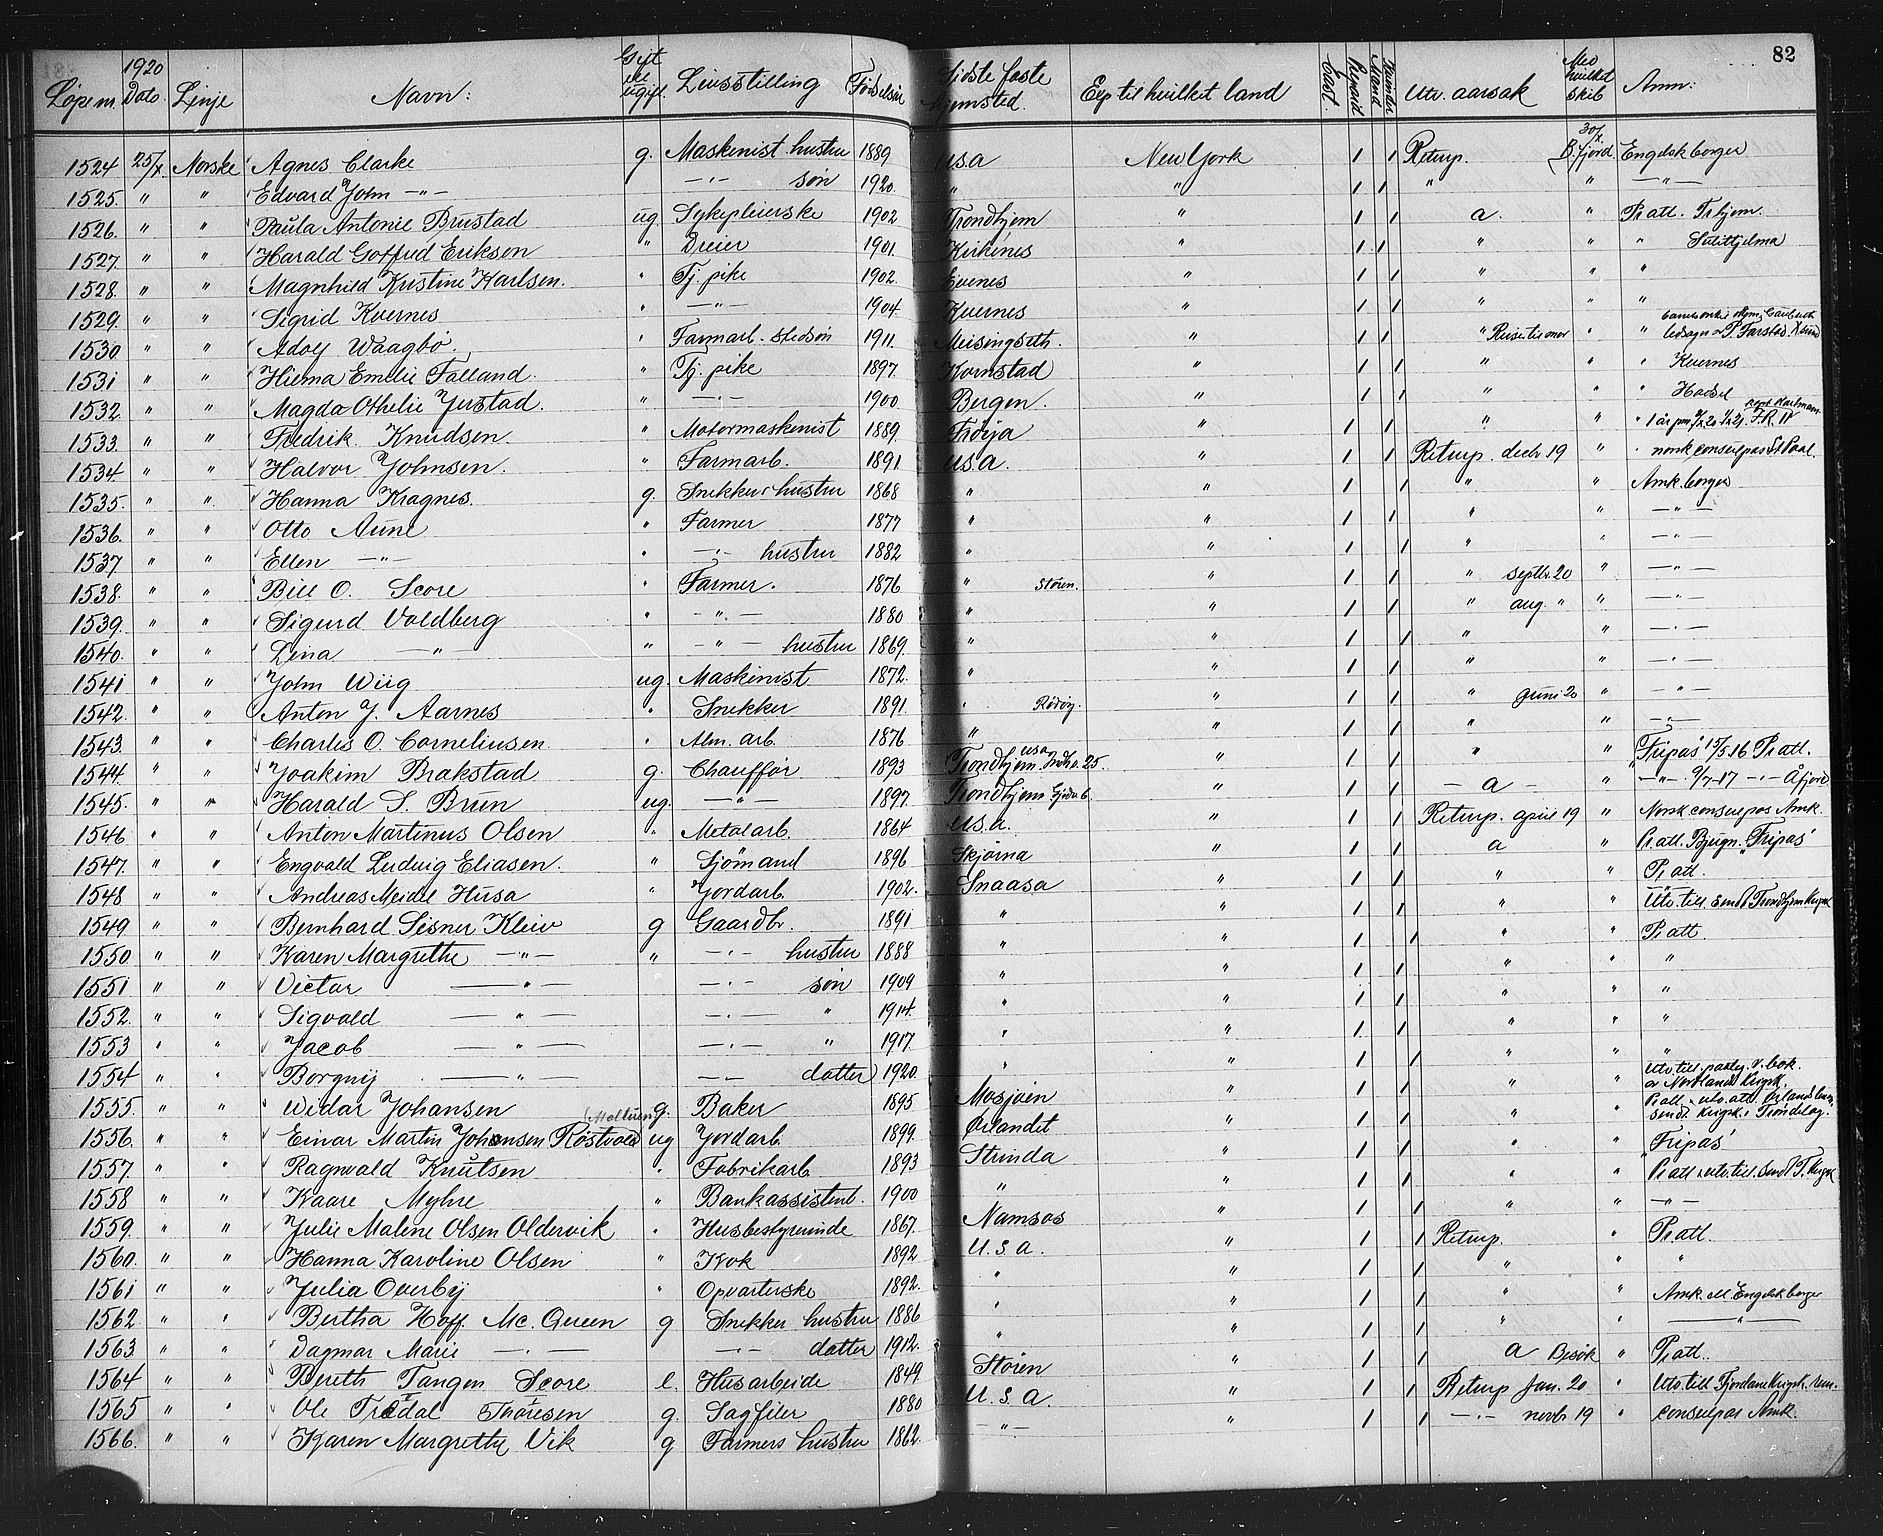 82
Løpe nr. 1920 Dato Linje Navn: Gift ell. ugift Livsstilling Fødselsår Sidste faste hjemsted. Exp til hvilket land Utv. aarsak Med hvilket skib Anm:
1524 25/X Norske Agnes Clarke g. Maskinist hustru 1889 USA New York 1 1 Returp. 30/X B.fjord. Engelsk borger
1525. " " Edvard John —"— —"— søn 1920. " " 1 1 " " —"—
1526. " " Paula Antonie Brustad ug. Sykepleierske 1902 Trondhjem " 1 1 a. " Pr att. Trhjem.
1527. " " Harald Gotfred Erikson " Dreier 1901. Kirkenes " 1 1 " " " Sulithjelma
1528. " " Magnhild Kristine Karlsen. " Tj. pike 1902. Evenes " 1 1 " " "
1529. " " Sigrid Kvernes " —"— 1904. Kvernes " 1 1 " " "
1530 " " Adolf Waagbø. " Farmarb. stedsøn 1911. Meisingseth. " 1 1 " Reise til mor " " ledsages av P. Farstad
1531 " " Hilma Emelie Falland. " Tj. pike 1897. Kornstad " 1 1 " " " Kvernes
1532. " " Magda Othelie Jerstad. " —"— 1900. Bergen. " 1 1 " " "
1533. " " Fredrik Knudsen. " Motormaskinist 1889. Frøya " 1 1 " " " F.R. 11
1534. " " Halvor Johnsen. " Farmarb. 1891 USA. " 1 1 Returp. decbr 19 " norsk consulpas St Paul.
1535. " " Hanna Kragnes. g. Snekker hustru 1868 " " 1 1 " " Amk. borger
1536. " " Otto Aune " Farmer 1877 " " 1 1 " " —"—
1537 " " Ellen —"— " —"— hustru 1882 " " 1 1 " " —"—
1538. " " Bill O. Score " Farmer. 1876 " Støren. " 1 1 " septbr. 20 " —"—
1539. " " Sigurd Voldberg " —"— 1880 " " 1 1 " aug. " " —"—
1540. " " Lina —"— " —"— hustru 1869. " " 1 1 " " —"—
1541 " " John Wiig ug. Maskinist 1872. " " 1 1 " " —"—
1542. " " Anton J. Aarnes " Snekker 1891 " Rödöy. " 1 1 " juni 20 " —"—
1543. " " Charles O. Corneliusen. " Alm. arb. 1876 " " 1 1 " " —"—
1544. " " Joakim Brakstad g. Chauffør 1893 Trondhjem. USA " 1 1 " " "Fripas" 15/5 16 Pr att.
1545. " " Harald S. Brun ug. —"— 1897. Trondhjem " 1 1 — a — " —"— 9/7-17 —"— Åfjord
1546. " " Anton Martinus Olsen " Metalarb. 1864 USA. " 1 1 Returp. april 19 " Norsk consulpas Amk.
1547. " " Engvald Ludvig Eliasen. " Sjömand 1896 Skjørna " 1 1 a " Pr att. Bjugn. "Fripas"
1548 " " Andreas Meidel Husa " Jordarb. 1902. Snaasa " 1 1 " " Pr att.
1549 " " Bernhard Sesner Kleiv g Gaardbr. 1891 " " 1 1 " " Utv. till. Sendt Trondhjem Krigsk
1550. " " Karen Margrethe —"— " —"— hustru 1888 " " 1 1 " " Pr att
1551 " " Victor —"— —"— søn 1909 " " 1 1 " " "
1552. " " Sigvald —"— —"— " 1914. " " 1 1 " " "
1553 " " Jacob —"— —"— " 1917. " " 1 1 " " "
1554 " " Borgny —"— —"— datter 1920. " " 1 1 " " "
1555. " " Widar Johansen g. Baker 1895 Mosjøen " 1 1 " " Utv. till. paateg. v. bok. av Nordlands Krigsk.
1556. " " Einar Martin Johansen Röstvold ug Jordarb. 1899. Ørlandet " 1 1 " " Pr att. utv. att. Ørland sendt Krigsk. Trøndelag.
1557. " " Ragnvald Knutsen " Fabrikarb. 1893 Strinda " 1 1 " " "Fripas"
1558 " " Kaare Myhre " Bankassistent. 1900 " " 1 1 " " Pr att utv. till. Sendt T. Krigsk
1559. " " Julie Malene Olsen Oldervik " Husbestyrerinde 1867. Namsos " 1 1 " " —"—
1560. " " Hanna Karoline Olsen " Kok 1892 U.S.A. " 1 1 Returp. " Pr att.
1561 " " Julia Overby " Opvarterske 1892. " " 1 1 " " "
1562 " " Bertha Hoff Mc. Queen g Snekker hustru 1886 " " 1 1 " " Amk. ell Engelsk borger
1563 " " Dagmar Marie —"— —"— datter 1912. " " 1 1 " " —"—
1564 " " Bereth Tangen Score e. Husarbeide 1849. Støren " 1 1 a Besök " Pr att.
1565 " " Ole Tredal Thoresen g. Sagfiler 1880 U.S.A. " 1 1 Returp Jan. 20 " Utv. till Fjordane Krigsk.
1566. " " Karen Margrethe Vik g Farmers hustru 1862. —"— " 1 1 —"— novbr 19 " Consulpas Amk.